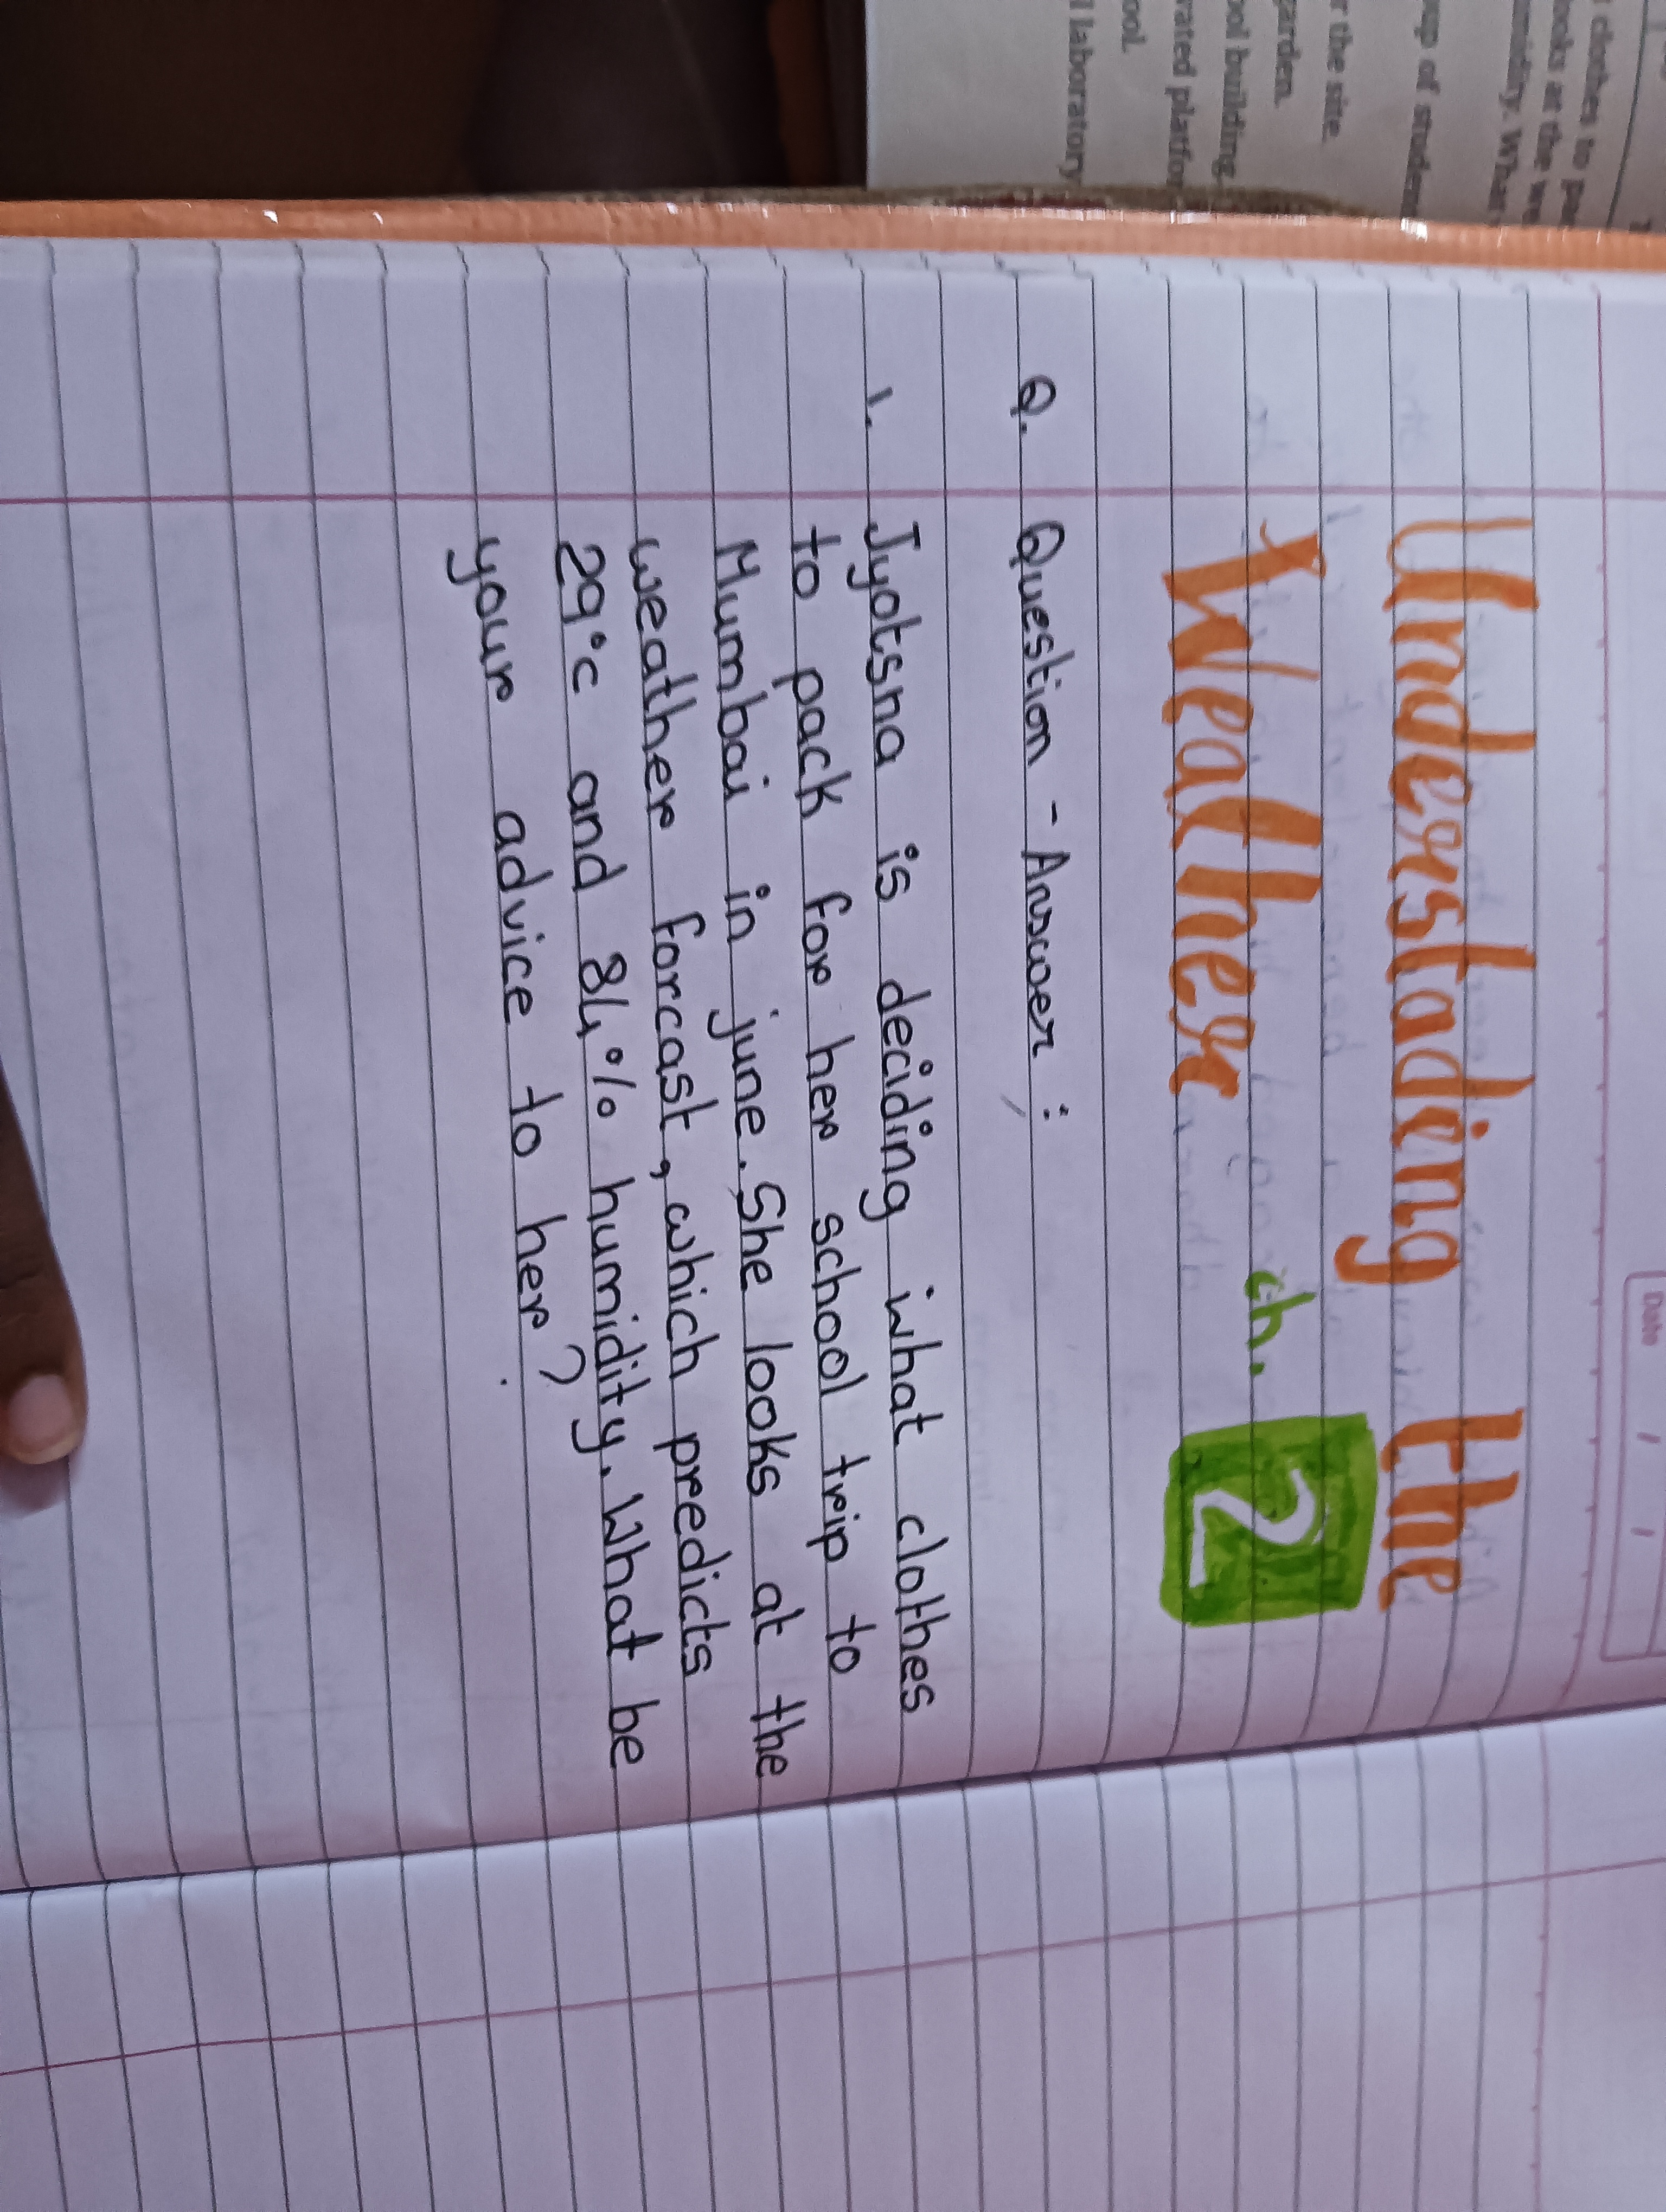 Date / /
Understading the
Weather ch. 2
Q. Question - Answer :
1. Jyotsna is deciding what clothes
to pack for her school trip to
Mumbai in june. She looks at the
weather forcast, which predicts
29°c and 84% humidity. What be
your advice to her?
clothes to
looks at the
umidity. What
of studen
r the site.
garden.
ool building.
vated platfo
ool.
l laboratory